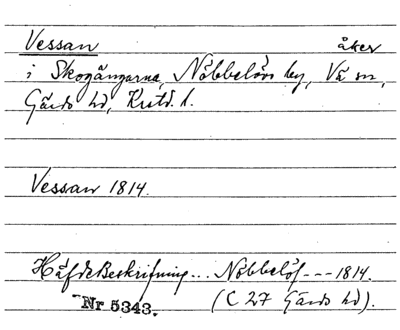 Vessan åker
i Skogängarna, Nöbbelövs by, Vä sn,
Gärds hd, Krstd. l.
Vessan 1814.
HäfdeBeskrifning... Nöbbelöf --- 1814.
Nr 5343. (C 27 Gärds hd).